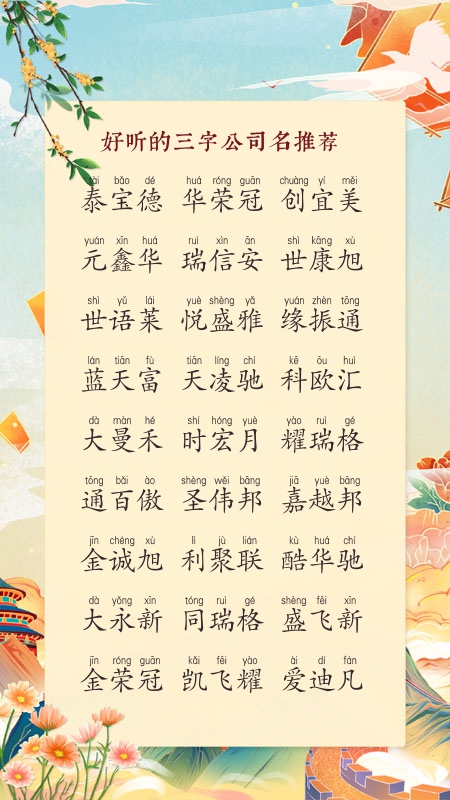 好听的三字公司名推荐
tài bǎo dé huá róng guān chuàng yí měi
泰宝德 华荣冠 创宜美
yuán xīn huá ruì xìn ān shì kāng xù
元鑫华 瑞信安 世康旭
shì yǔ lái yuè shèng yǎ yuán zhèn tōng
世语莱 悦盛雅 缘振通
lán tiān fù tiān líng chí kē ōu huì
蓝天富 天凌驰 科欧汇
dà màn hé shí hóng yuè yào ruì gé
大曼禾 时宏月 耀瑞格
tōng bǎi ào shèng wěi bāng jiā yuè bāng
通百傲 圣伟邦 嘉越邦
jīn chéng xù lì jù lián kù huá chí
金诚旭 利聚联 酷华驰
dà yǒng xīn tóng ruì gé shèng fēi xīn
大永新 同瑞格 盛飞新
jīn róng guān kǎi fēi yào ài dí fán
金荣冠 凯飞耀 爱迪凡